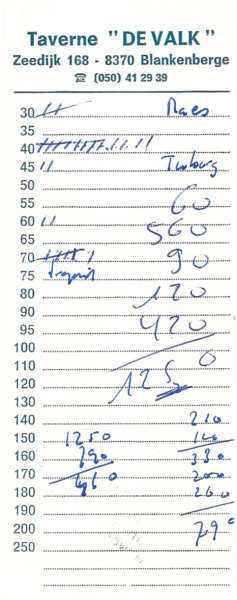 Taverne "DE VALK"
Zeedijk 168 - 8370 Blankenberge
☎ (050) 41 29 39
30 Maes
35
40
45 Tuborg
50 60
55
60 560
65
70 90
75
80 120
85
90 420
95
100
110 1250
120
130
140 210
150 1250 140
160 790 330
170 460 200
180 260
190
200 790
250